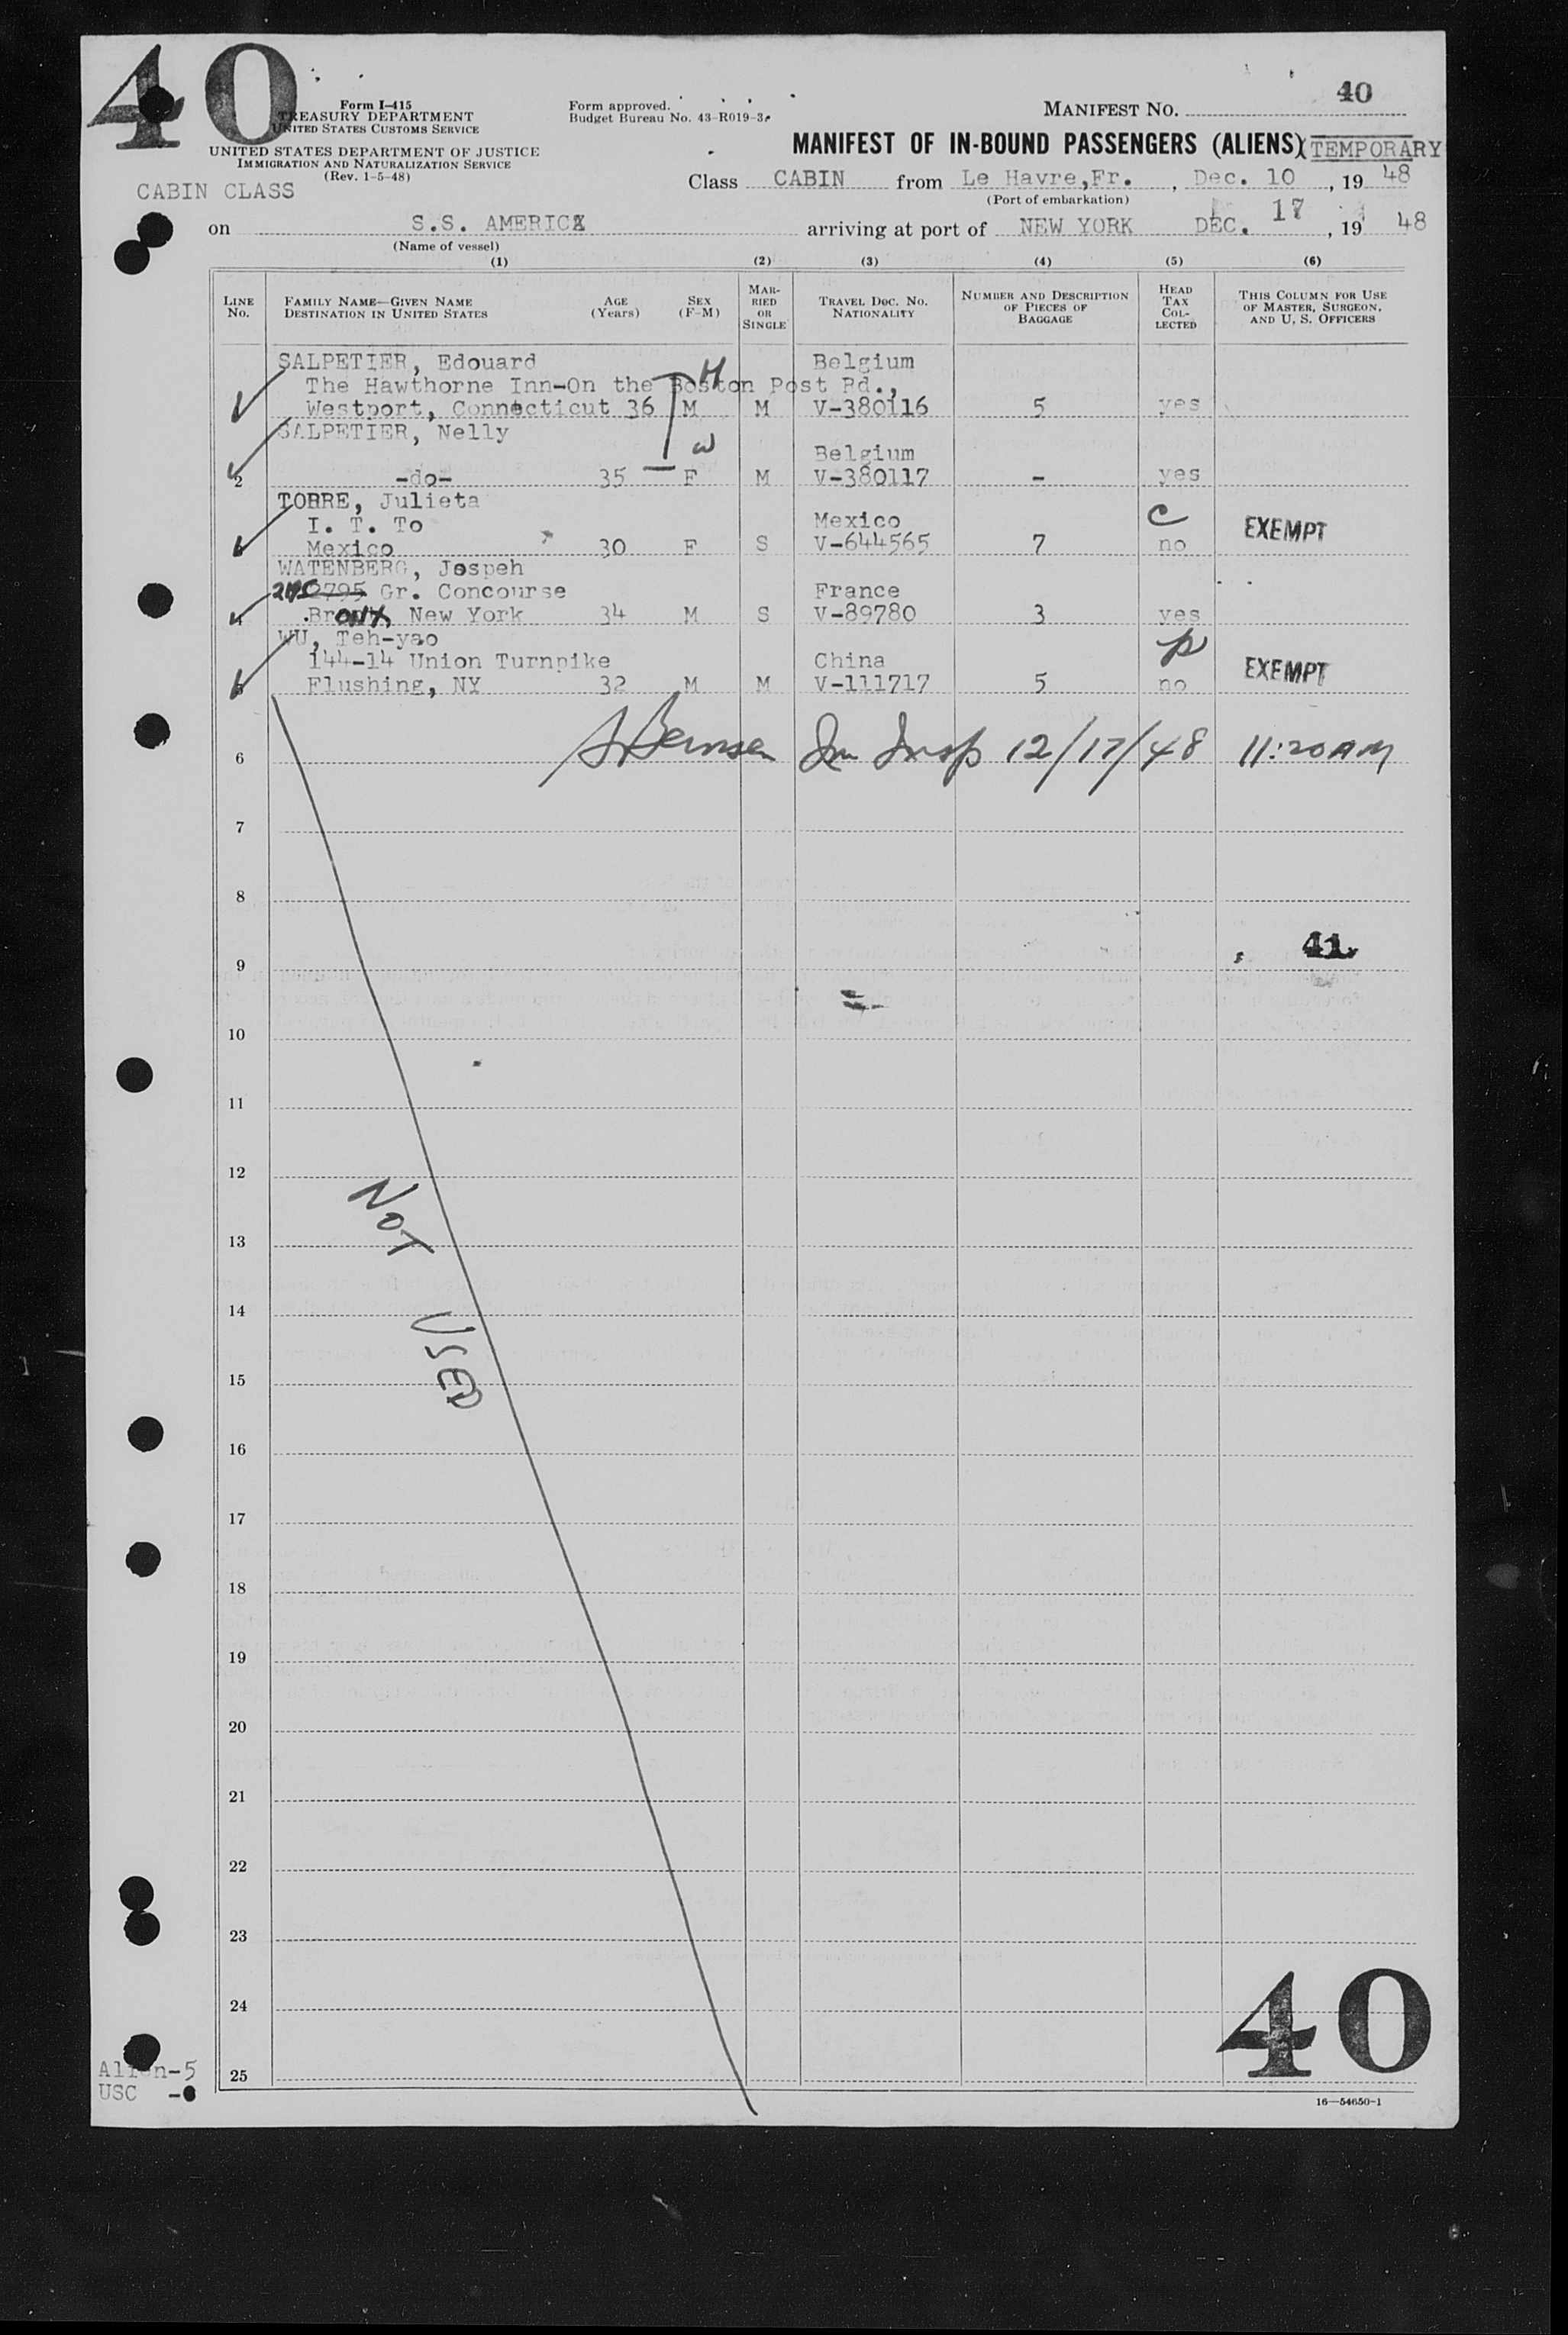 40
Form I-415
TREASURY DEPARTMENT
UNITED STATES CUSTOMS SERVICE
UNITED STATES DEPARTMENT OF JUSTICE
IMMIGRATION AND NATURALIZATION SERVICE
(Rev. 1-5-48)
Form approved.
Budget Bureau No. 43-R019-3.
MANIFEST No. 40
MANIFEST OF IN-BOUND PASSENGERS (ALIENS) TEMPORARY
CABIN CLASS
Class CABIN from Le Havre,Fr., Dec. 10, 19 48
(Port of embarkation)
on S.S. AMERICA arriving at port of NEW YORK DEC. 17, 19 48
(Name of vessel)
(1) (2) (3) (4) (5) (6)
LINE No. FAMILY NAME—GIVEN NAME DESTINATION IN UNITED STATES AGE (Years) SEX (F-M) MARRIED OR SINGLE TRAVEL DOC. NO. NATIONALITY NUMBER AND DESCRIPTION OF PIECES OF BAGGAGE HEAD TAX COLLECTED THIS COLUMN FOR USE OF MASTER, SURGEON, AND U. S. OFFICERS
SALPETIER, Edouard Belgium
The Hawthorne Inn-On the Boston Post Rd., H
Westport, Connecticut 36 M M V-380116 5 yes
SALPETIER, Nelly W Belgium
2 -do- 35 F M V-380117 - yes
TORRE, Julieta
I. T. To Mexico C EXEMPT
Mexico 30 F S V-644565 7 no
WATENBERG, Jospeh
2795 Gr. Concourse France
4 Bronx, New York 34 M S V-89780 3 yes
WU, Teh-yao
144-14 Union Turnpike China p EXEMPT
5 Flushing, NY 32 M M V-111717 5 no
6 Im Insp 12/17/48 11:20 AM
7
8
9 41
10
11
12
NOT
13
14
USED
15
16
17
18
19
20
21
22
23
24
40
25
Alien-5
USC -0
16—54650-1